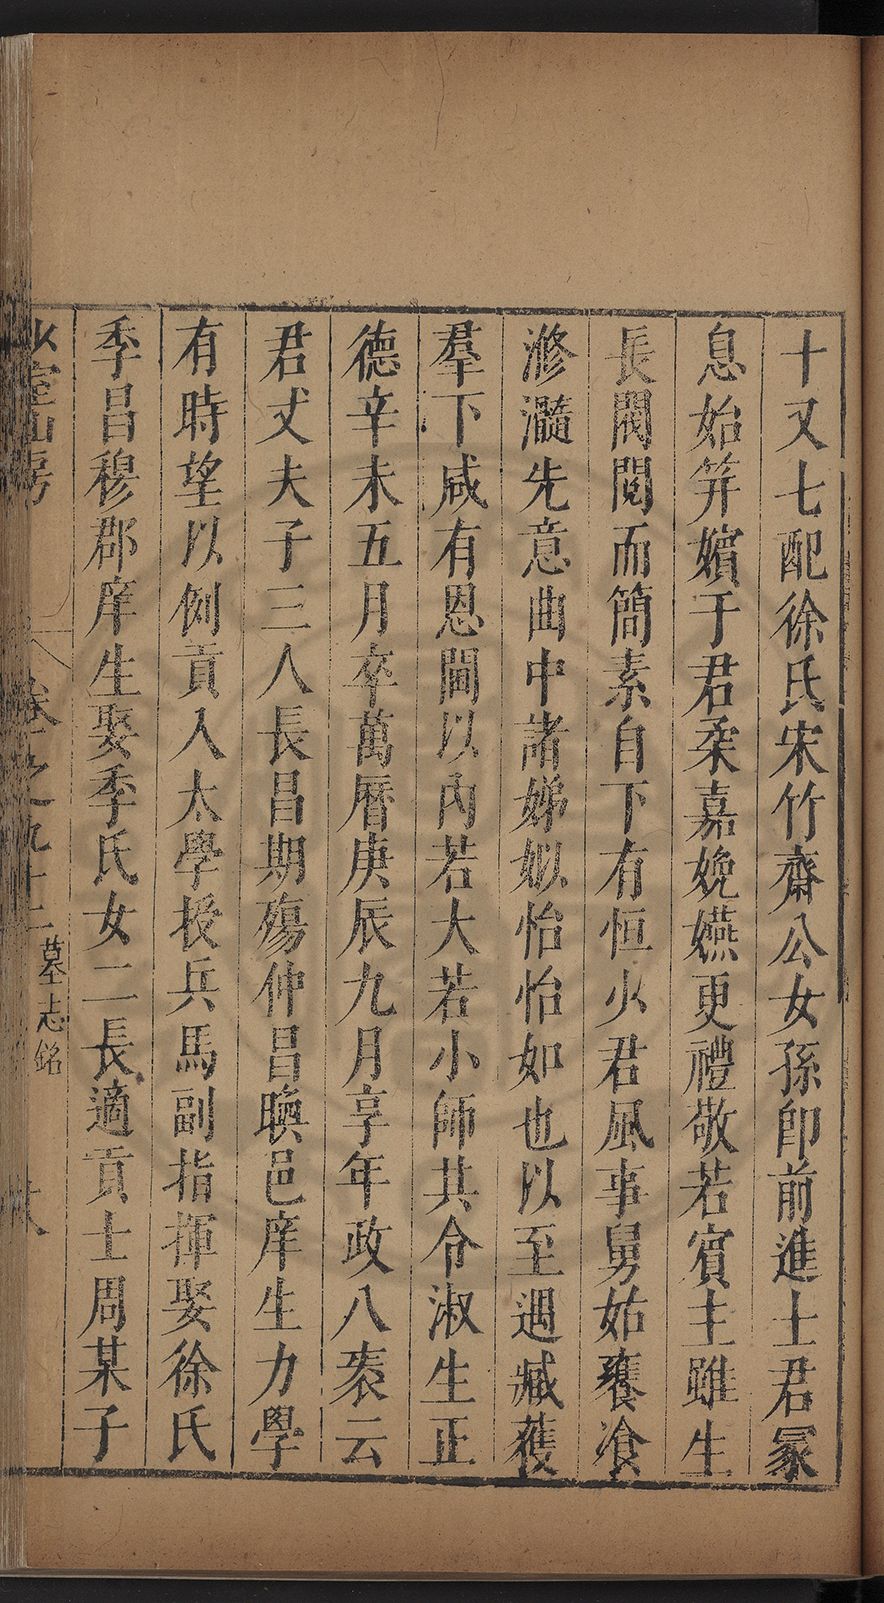 十又七配徐氏宋竹齋公女孫卽前進士君冡
息始笄嬪于君柔嘉娩嬿更禮敬若賓主雖生
長閥閱而簡素自下有恒火君風事舅姑饔飡
滫瀡先意曲中諸娣姒怡怡如也以至遇臧獲
羣下咸有恩閫以內若大若小師其令淑生正
德辛未五月卒萬曆庚辰九月享年政八袠云
君丈夫子三人長昌期殤仲昌㬇邑庠生力學
有時望以例貢入太學授兵馬副指揮娶徐氏
季昌穆郡庠生娶季氏女二長適貢士周某子
少室山房 卷之九十二 墓志銘